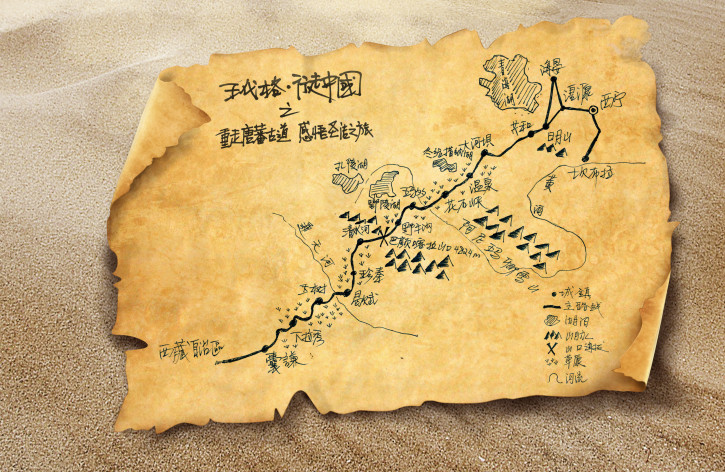 行走中國
之
重走唐蕃古道 感悟圣洁之旅
青海湖
海晏
湟源
西宁
共和
日月山
坎布拉
大河坝
冬给措纳湖
温泉
黄河
花石峡
阿尼玛卿雪山
扎陵湖
鄂陵湖
玛多
野牛沟
清水河
巴颜喀拉山口 4824m
通天河
珍秦
玉树
歇武
下拉秀
囊謙
西藏自治区
城镇
主路线
湖泊
山脉
山口海拔
草原
河流